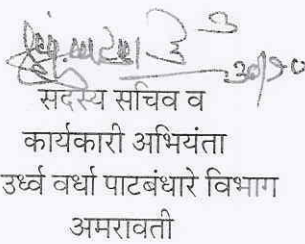 ३०/१०
सदस्य सचिव व
कार्यकारी अभियंता
उर्ध्व वर्धा पाटबंधारे विभाग
अमरावती